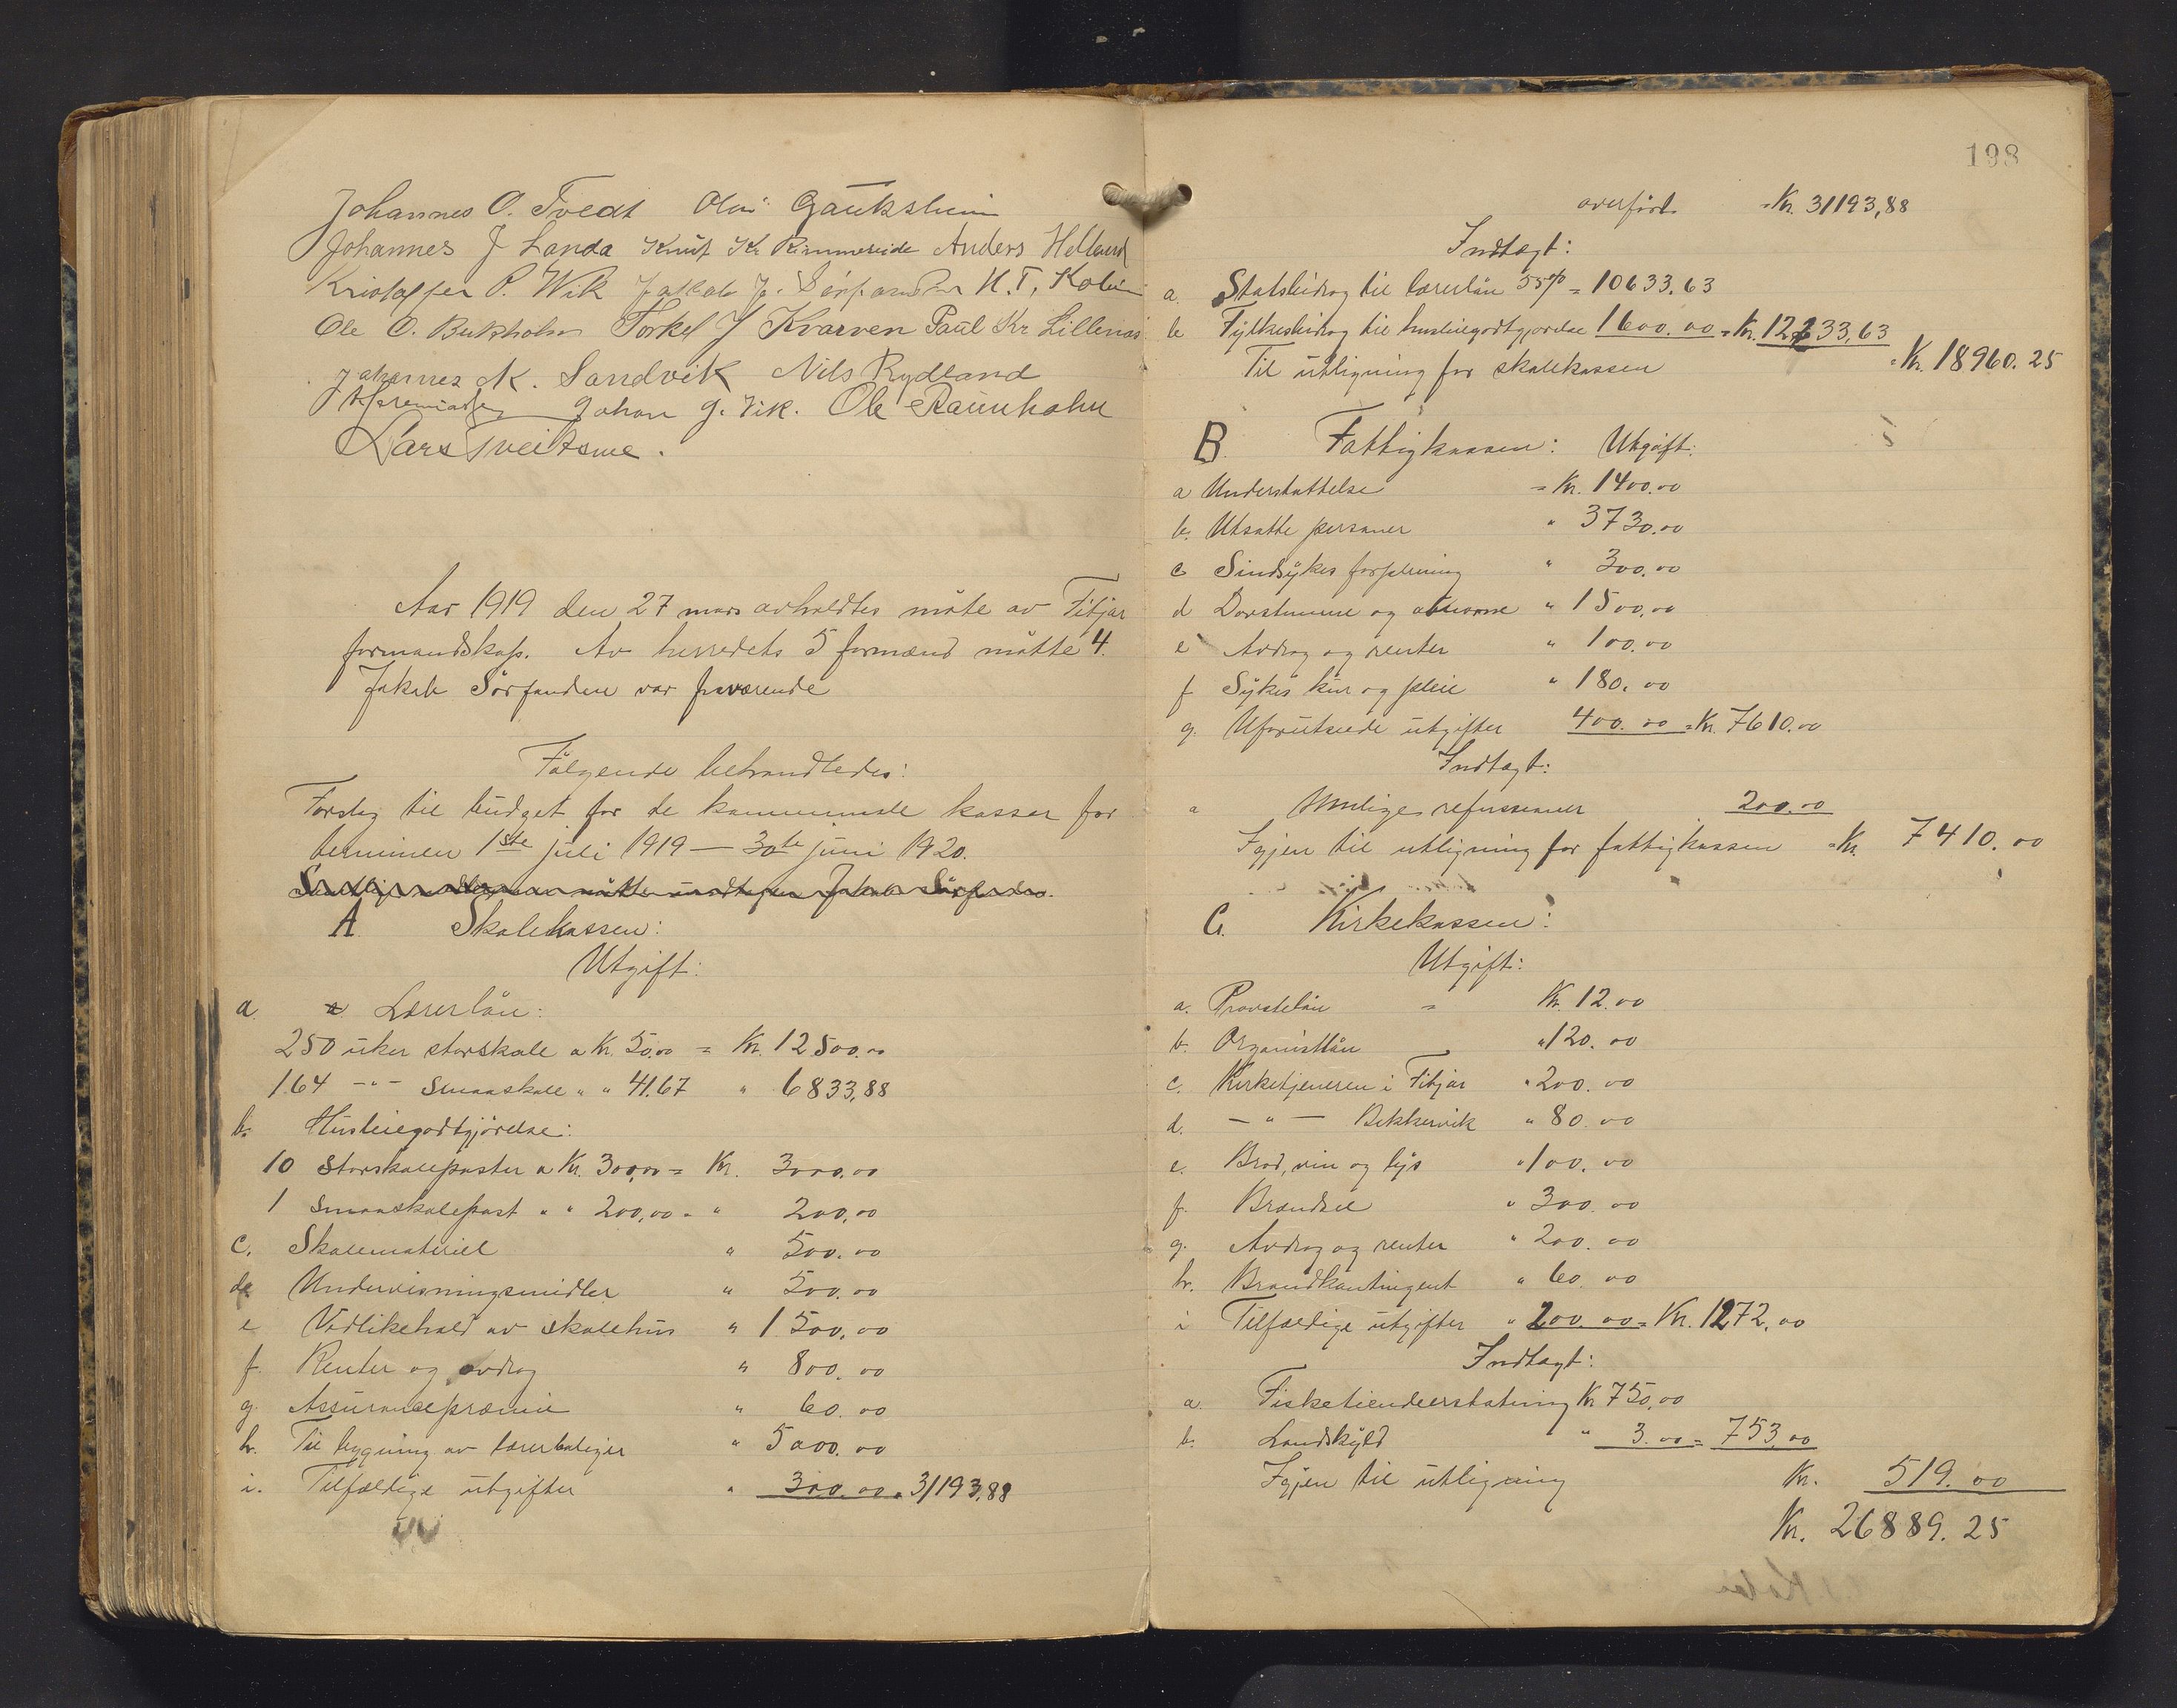 Johannes O. Tvedt Olai Gauksheim
Johannes J Landa Knut Kr Rimmereide Anders Helland
Kristoffer P. Wik Jakob J. Sørfonden H. T. Koløen
Ole O. Bukholm Torkel J Kvarven Paul Kr Lillenes
Johannes M. Sandvik Nils Rydland
Johan J. Vik. Ole Raunholm
Lars Tveitsme.
Aar 1919 den 27 mars avholdtes møte av Fitjar
formandskap. Av herredets 5 formænd møtte 4.
Jakob Sørfonden var fraværende
Følgende behandledes:
Forslag til budget for de kommunale kasser for
terminen 1ste juli 1919 — 30te juni 1920.
A Skolekassen:
Utgift:
a. Lærerløn:
250 uker storskole a Kr. 50.00 = Kr. 12500.00
164 -"- smaaskole " " 41.67 " 6833,88
b. Husleiegodtgjørelse:
10 storskoleposter a Kr. 300,00 = Kr. 3000.00
1 smaaskolepost " " 200,00 = " 200,00
c. Skolemateriel " 500.00
d Undervisningsmidler " 500.00
e Vedlikehold av skolehus " 1500,00
f. Renter og avdrag " 800.00
g. Assurancepræmie " 60.00
h. Til bygning av lærerboliger " 5000.00
i. Tilfældige utgifter " 300.00 = 31193,88
198
overført = Kr. 31193,88
Indtægt:
a. Statsbidrag til lærerløn 55% = 10633.63
b Fylkesbidrag til husleiegodtgjørelse 1600.00 = Kr. 12233,63
Til utligning for skolekassen = Kr. 18960.25
B. Fattigkassen: Utgift:
a Understøttelse = Kr. 1400.00
b. Utsatte personer " 3730.00
c Sindsykes forpleining " 300.00
d Dovstumme og abnorme " 1500,00
e Avdrag og renter " 100.00
f Sykes kur og pleie " 180.00
g. Uforutseede utgifter 400.00 = Kr. 7610.00
Indtægt:
a Mulige refusioner 200.00
Igjen til utligning for fattigkassen = Kr. 7410.00
C. Kirkekassen:
Utgift:
a. Provsteløn = Kr. 12.00
b. Organistløn " 120.00
c. Kirketjeneren i Fitjar " 200.00
d. — " — Bekkervik " 80.00
e. Brød, vin og lys " 100.00
f. Brændsel " 300.00
g. Avdrag og renter " 200.00
h. Brandkontingent " 60.00
i Tilfældige utgifter " 200.00 = Kr. 1272.00
Indtægt:
a. Fisketiendeerstatning Kr 750,00
b. Landskyld " 3.00 = 753.00
Igjen til utligning Kr. 519.00
Kr. 26889.25